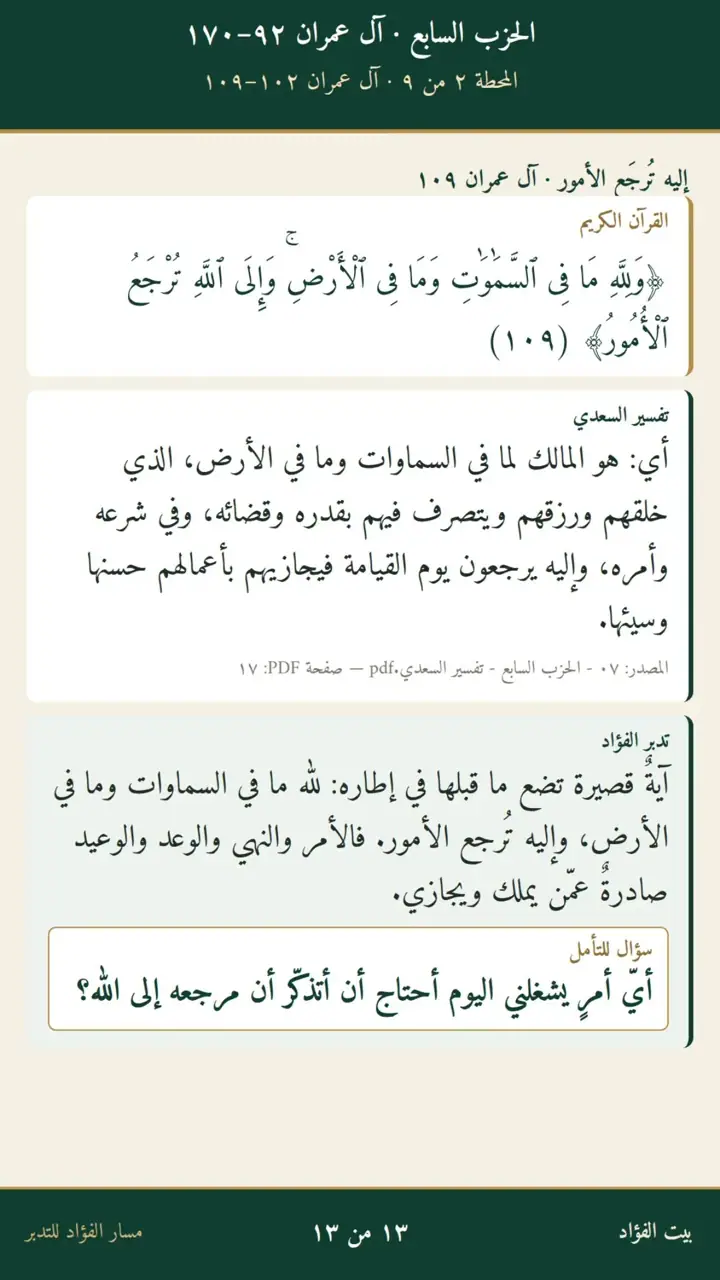 الحزب السابع · آل عمران ٩٢–١٧٠
المحطة ٢ من ٩ · آل عمران ١٠٢–١٠٩
إليه تُرجَع الأمور · آل عمران ١٠٩
القرآن الكريم
﴿وَلِلَّهِ مَا فِى ٱلسَّمَـٰوَٰتِ وَمَا فِى ٱلْأَرْضِ ۚ وَإِلَى ٱللَّهِ تُرْجَعُ
ٱلْأُمُورُ﴾ (١٠٩)
تفسير السعدي
أي: هو المالك لما في السماوات وما في الأرض، الذي
خلقهم ورزقهم ويتصرف فيهم بقدره وقضائه، وفي شرعه
وأمره، وإليه يرجعون يوم القيامة فيجازيهم بأعمالهم حسنها
وسيئها.
المصدر: ٠٧ - الحزب السابع - تفسير السعدي.pdf — صفحة PDF: ١٧
تدبر الفؤاد
آيةٌ قصيرة تضع ما قبلها في إطاره: لله ما في السماوات وما في
الأرض، وإليه تُرجع الأمور. فالأمر والنهي والوعد والوعيد
صادرةٌ عمّن يملك ويجازي.
سؤال للتأمل
أيّ أمرٍ يشغلني اليوم أحتاج أن أتذكّر أن مرجعه إلى الله؟
بيت الفؤاد
١٣ من ١٣
مسار الفؤاد للتدبر